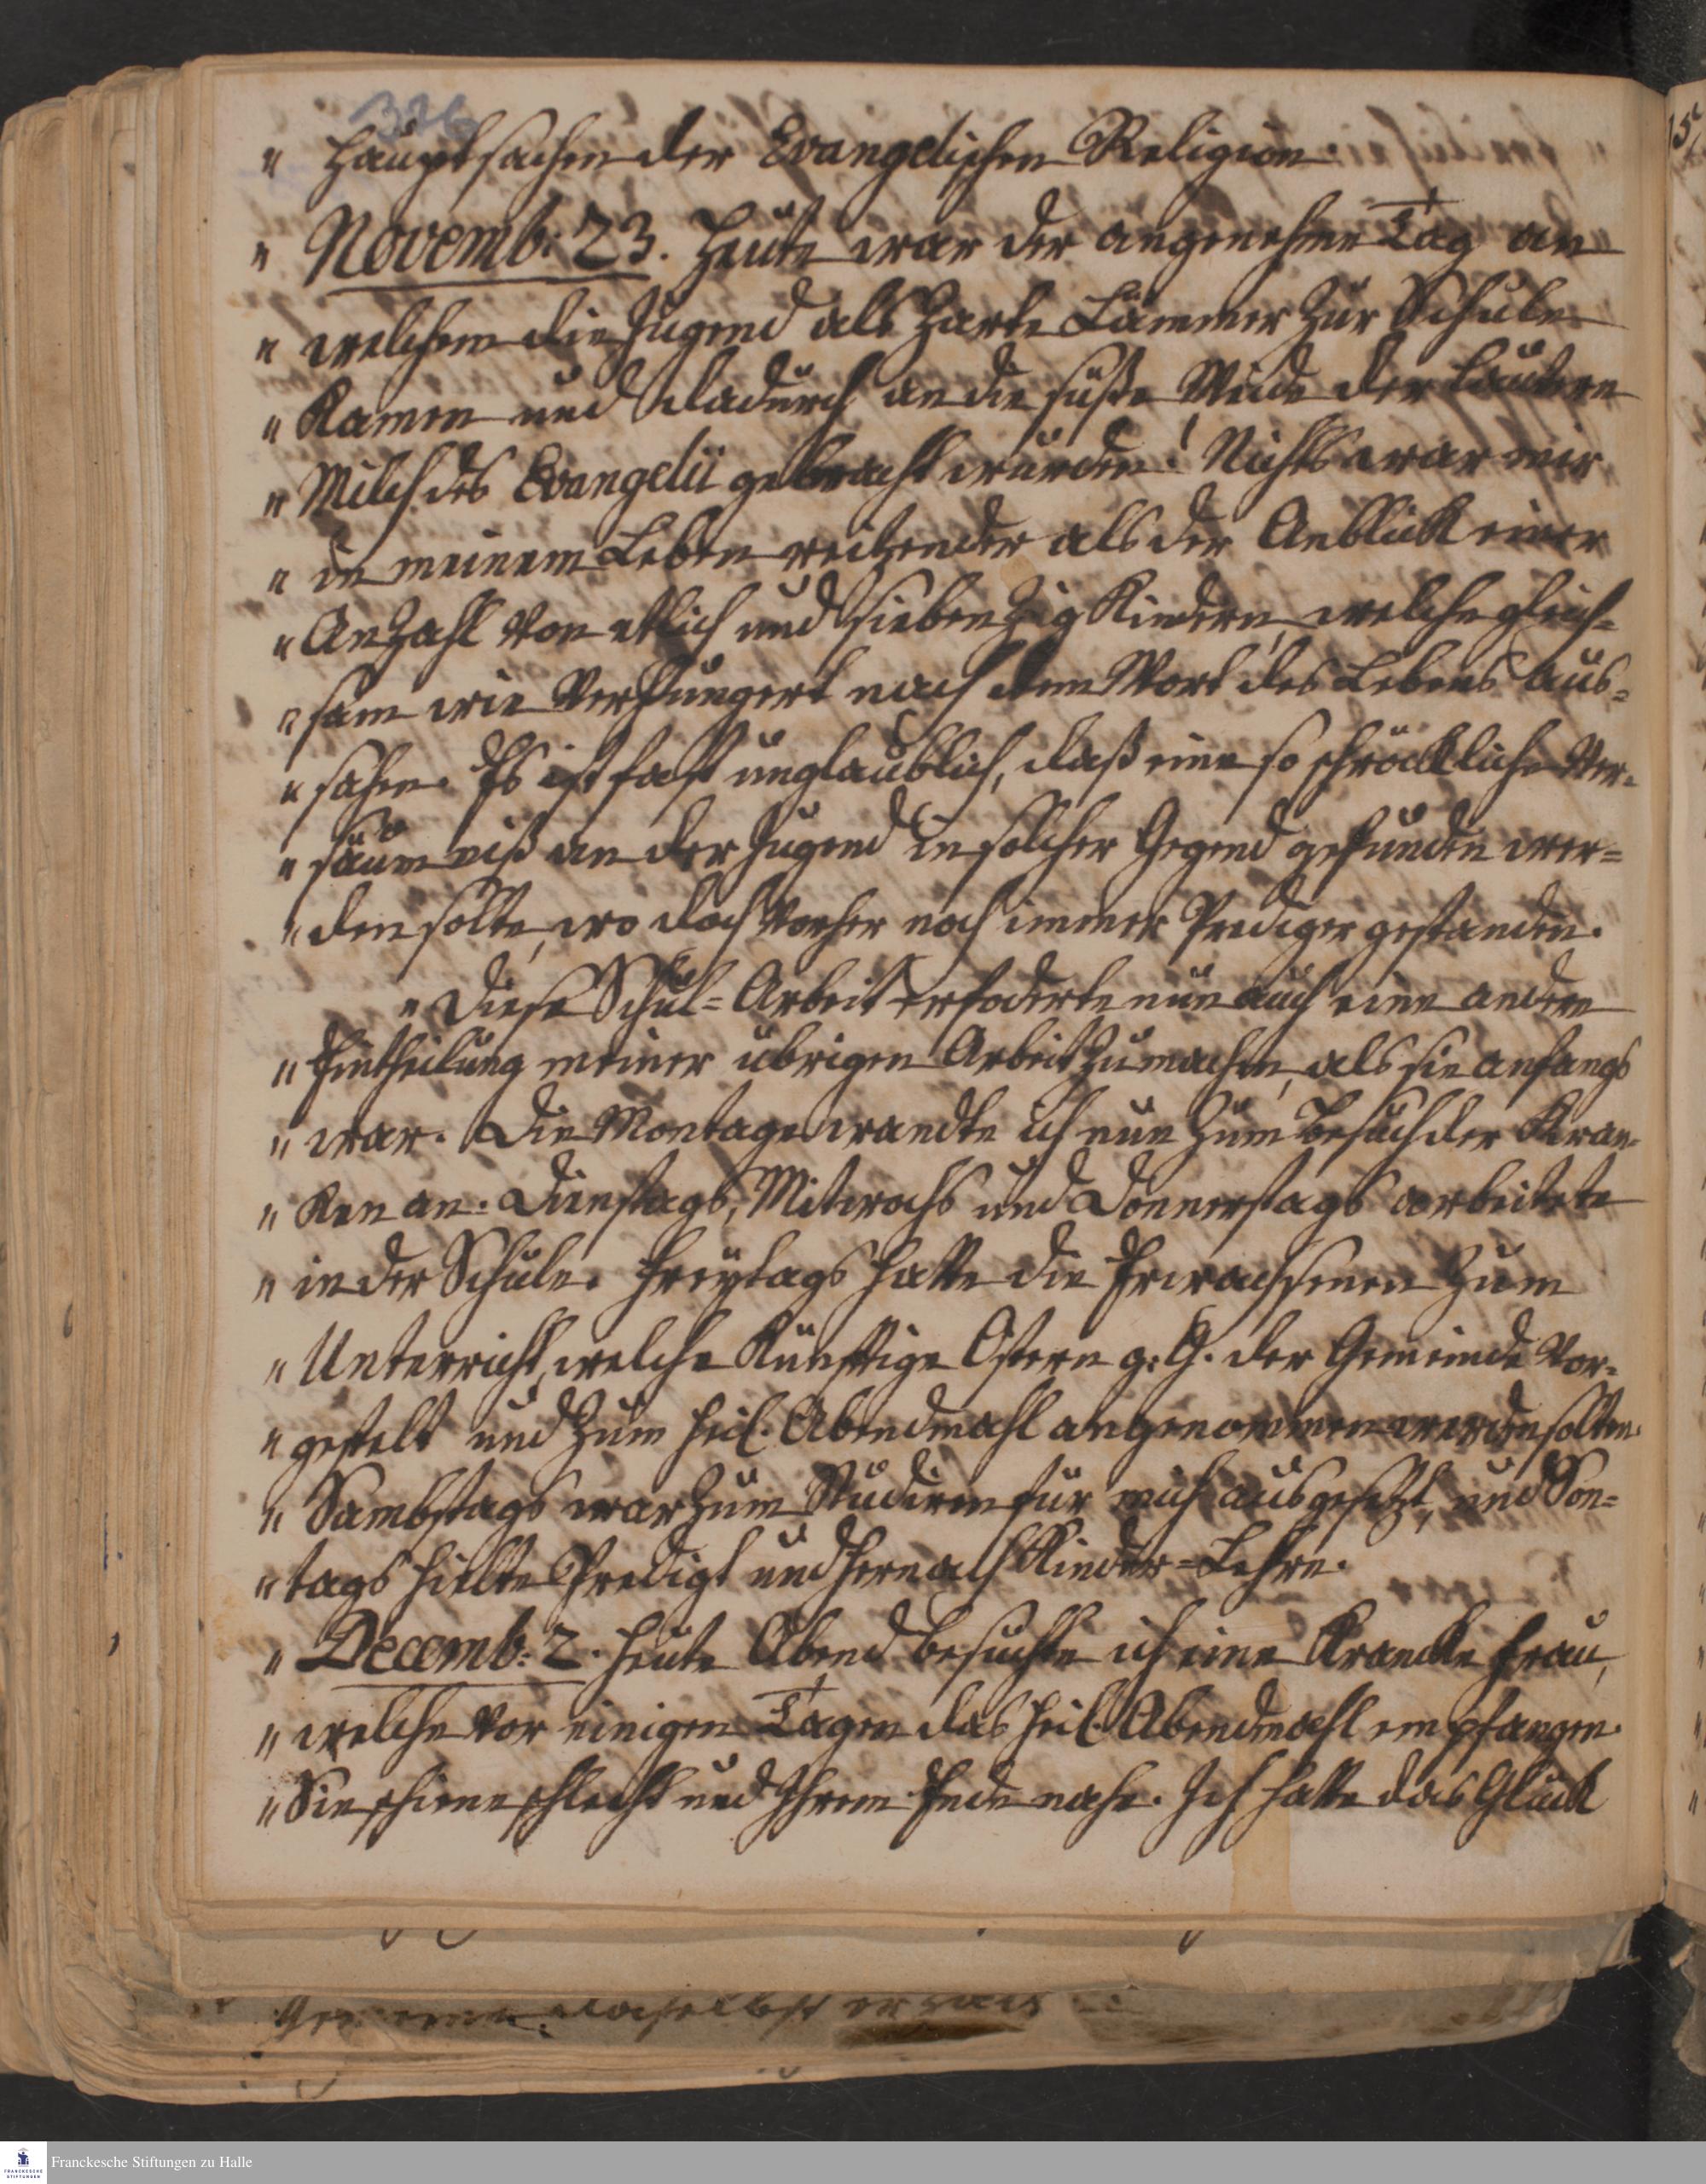 336
" Hauptsachen der Evangelischen Religion.
" Novemb: 23. Heute war der angenehme Tag an
" welchem die Jugend als zarte Lämmer zur Schule
" kamen und dadurch an die süße Weide der lautern
" Milch des Evangelii gebracht wurden! Nichts war mir
" in meinem Leben reitzender als der Anblick einer
" Anzahl von etlich und siebenzig Kindern, welche gleich-
" sam wie verhungert nach dem Wort des Lebens aus-
" sahen. Es ist fast unglaublich, daß eine so schröckliche Ver-
" säumniß an der Jugend in solcher Gegend gefunden wer-
" den solte, wo doch vorher noch immer Prediger gestanden.
" Diese Schul-Arbeit erfoderte nun auch eine andere
" Eintheilung meiner übrigen Arbeit zu machen, als sie anfangs
" war. Die Montage wandte ich nun zum Besuch der Kran-
" ken an. Dienstags, Mitwochs und Donnerstags arbeitete
" in der Schule. Freytags hatte die Erwachsenen zum
" Unterricht, welche künfftige Ostern g: G. der Gemeinde vor-
" gestelt und zum heil. Abendmahl angenommen werden solten.
" Sambstags war zum Studiren für mich ausgesetzt, und Son-
" tags hielte Predigt und hernach Kinder-Lehre.
" Decemb: 2. Heute Abend besuchte ich eine Krancke Frau,
" welche vor einigen Tagen das heil. Abendmahl empfangen.
" Sie schiene schlecht und Ihrem Ende nahe. Ich hatte das Glück
daselbst
Franckesche Stiftungen zu Halle